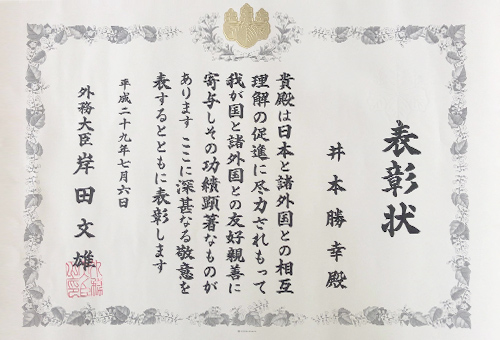 表彰状
井本勝幸殿
貴殿は日本と諸外国との相互
理解の促進に尽力されもって
我が国と諸外国との友好親善に
寄与しその功績顕著なものが
あります ここに深甚なる敬意を
表するとともに表彰します
平成二十九年七月六日
外務大臣 岸田文雄